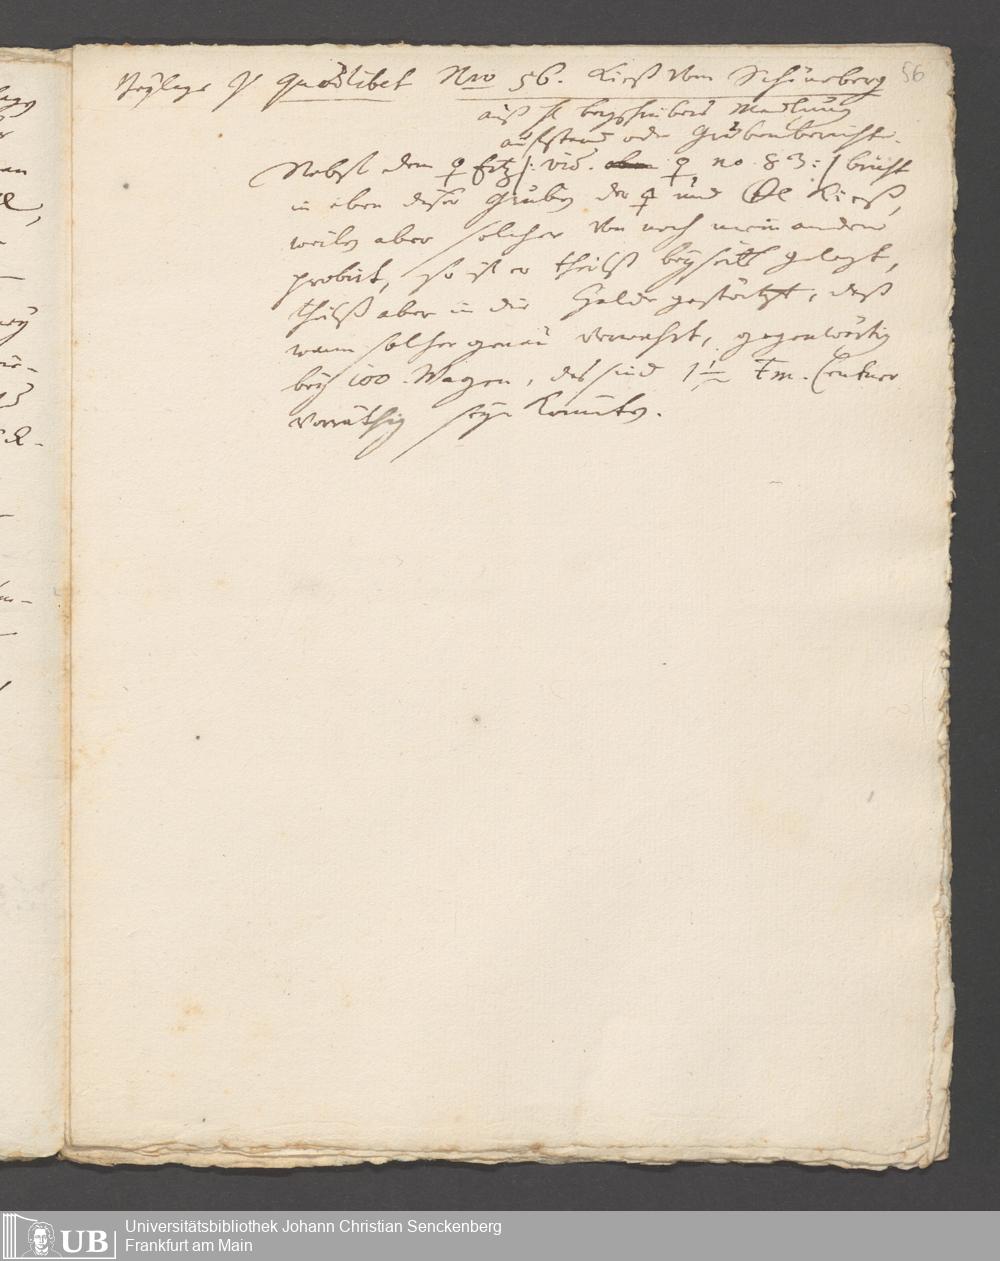 56
Beylage zu Quodlibet Nro 56. Kieß vom Schöneberg
auß H. bergschreibers Meldung
aufstand oder Grubenberichte.
Nebst dem ♀ Ertz /: vid. ♀ no 83 :/ bricht
in eben dieser Gruben der ♀ und Kieß,
weilen aber solcher von noch niemanden
probirt, so ist er theilß beyseith gelegt,
theilß aber in die Halde gestürtzt, daß
wann solcher genau verwahrt, gegenwärtig
bey 100 Wagen, das sind 1 m. Centner
vorräthig seyn könnte.
UB
Universitätsbibliothek Johann Christian Senckenberg
Frankfurt am Main